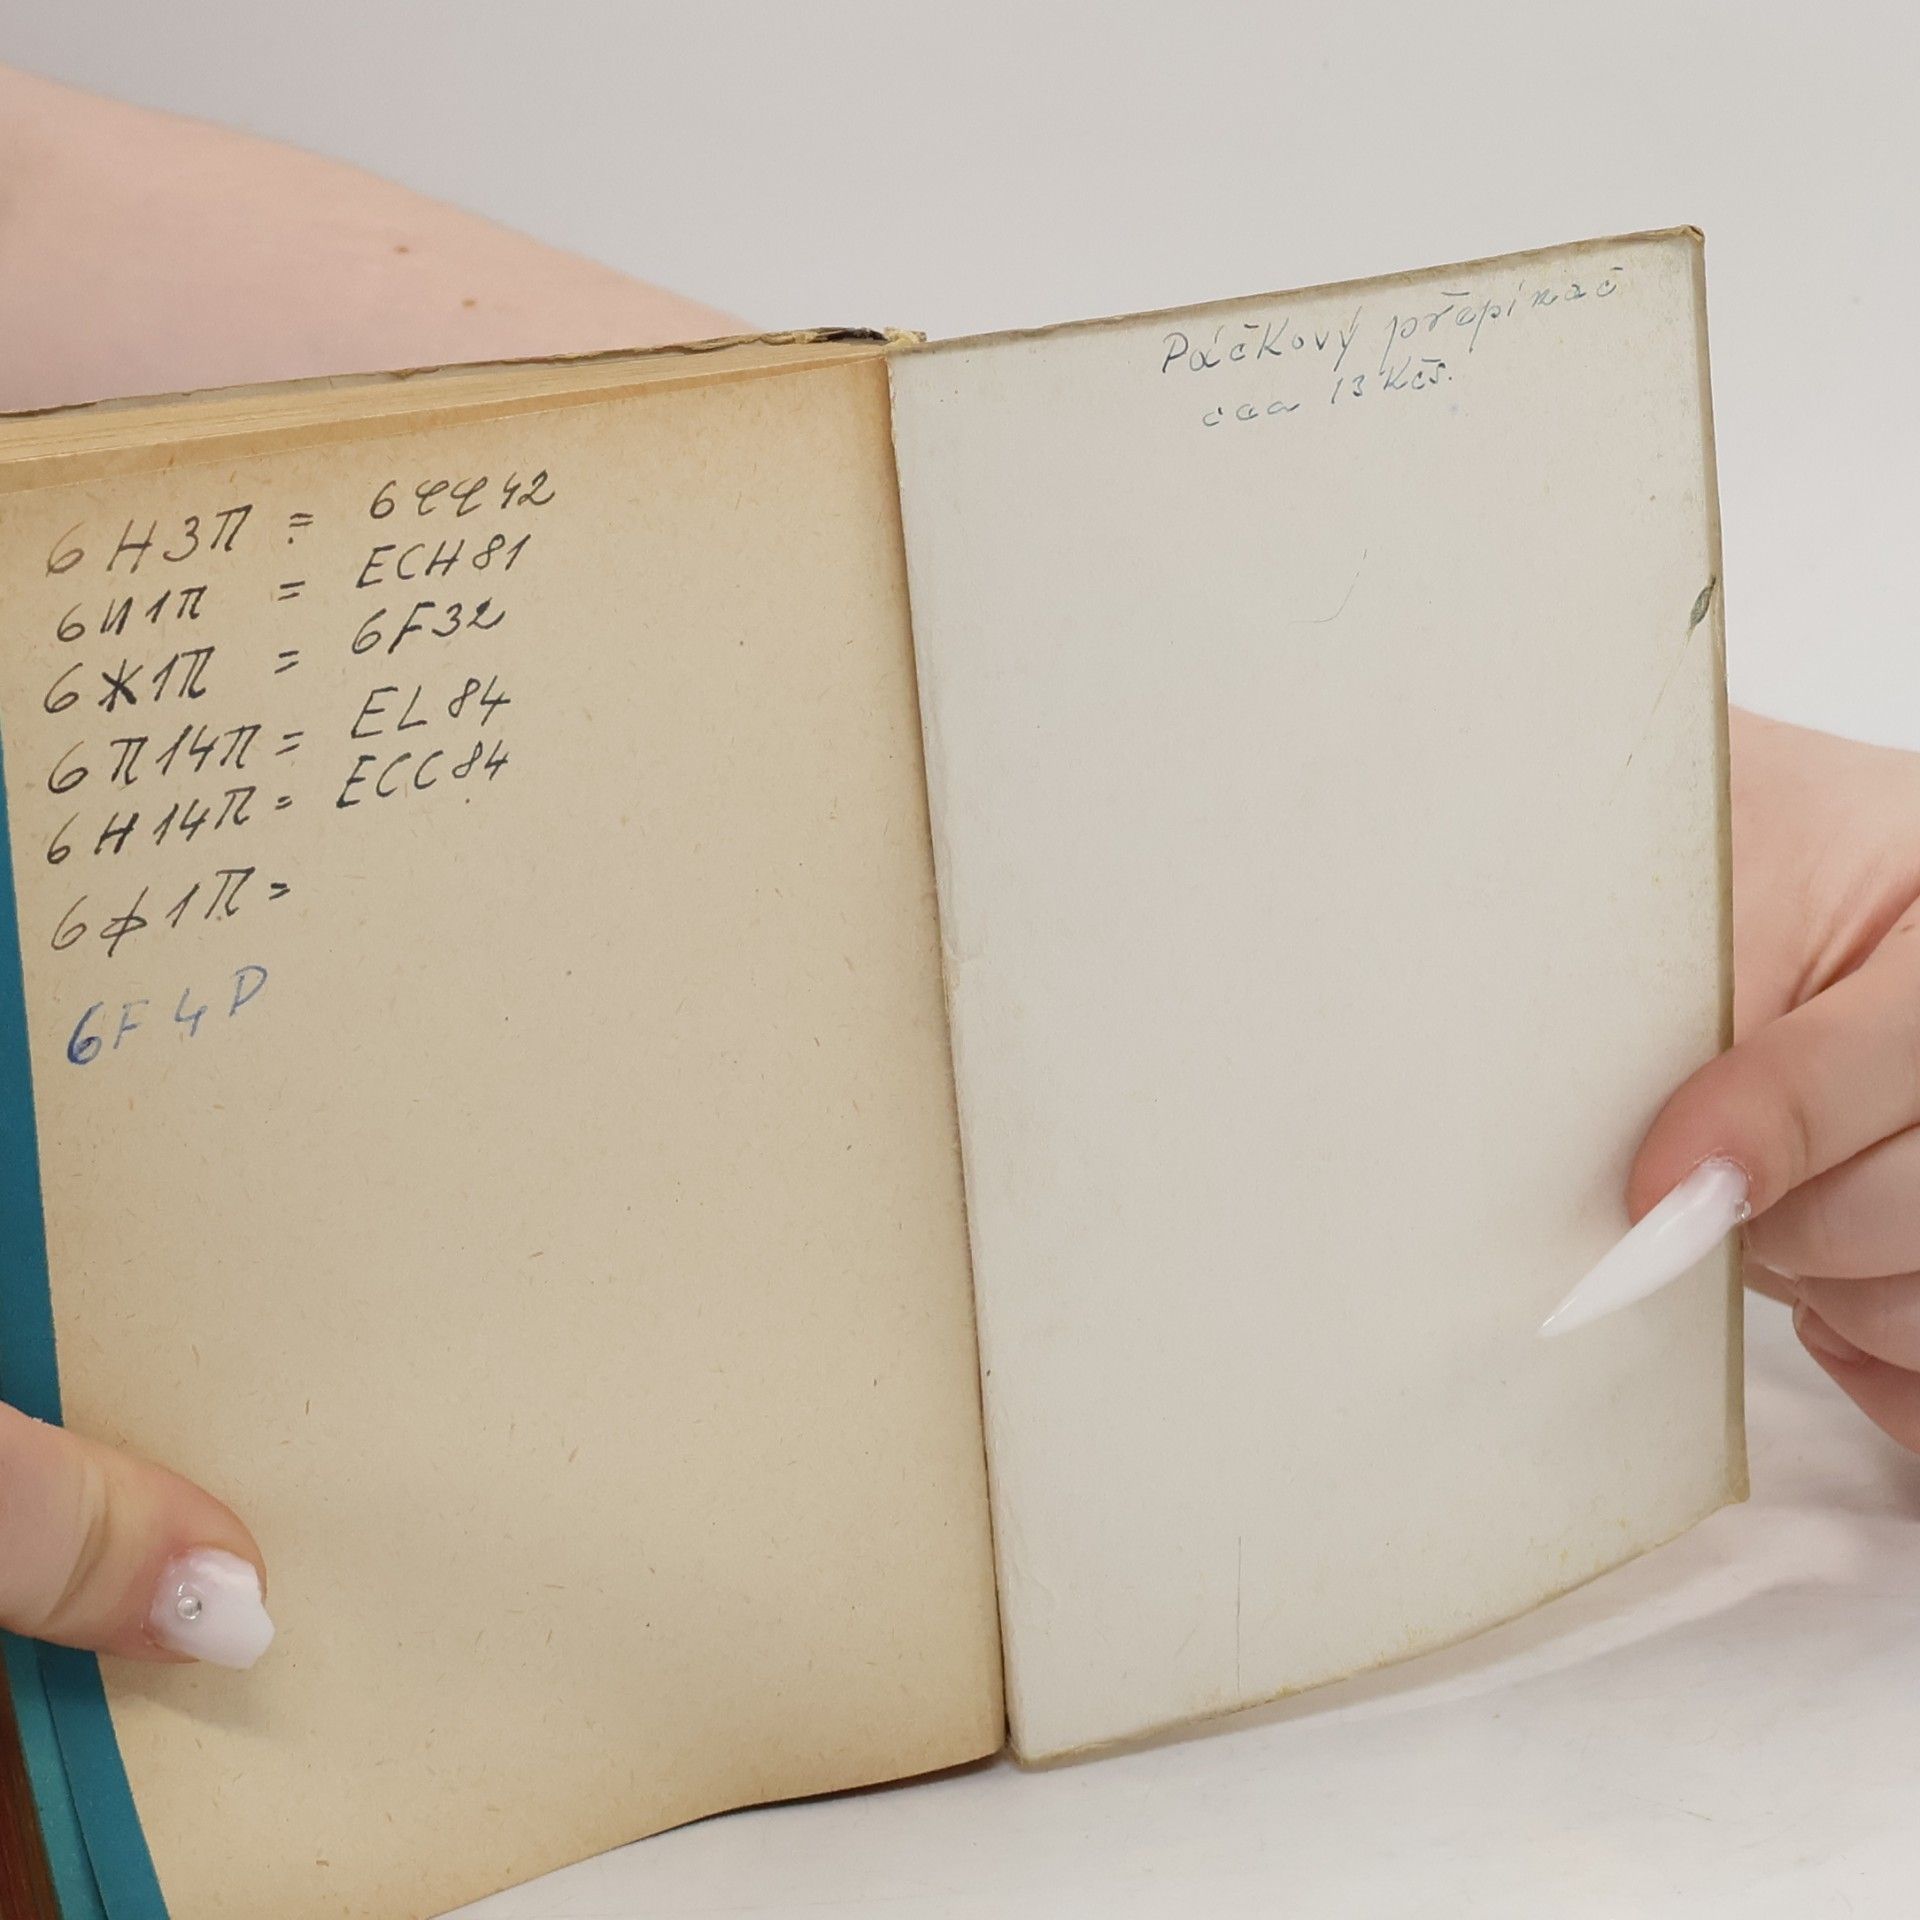 6Н3П = 6CC42
6И1П = ECH81
6Ж1П = 6F32
6П14П = EL84
6Н14П = ECC84
6Ф1П =
6F4P
Páčkový přepínač
cca 13 Kčs.